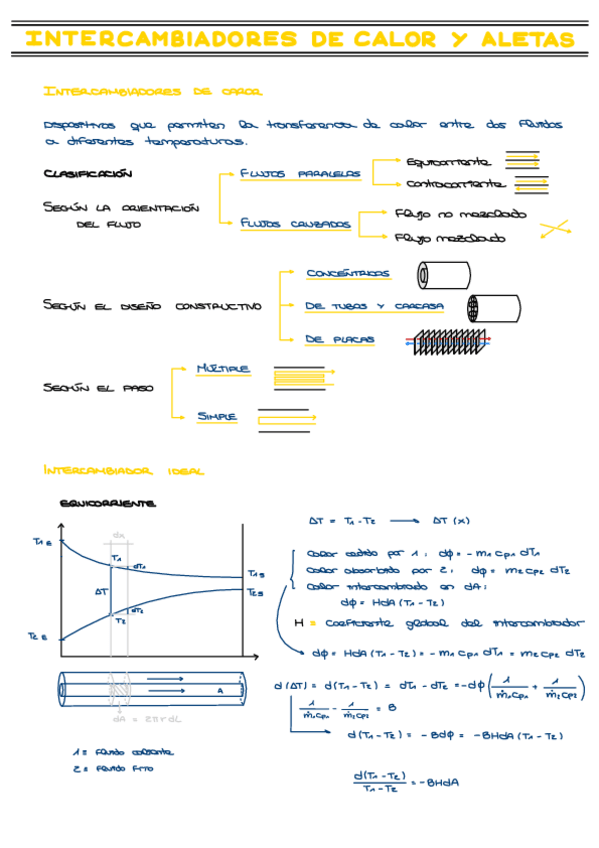 INTERCAMBIADORES DE CALOR Y ALETAS
INTERCAMBIADORES DE CALOR
DISPOSITIVOS que permiten la transferencia de calor entre dos fluidos
a diferentes temperaturas.
CLASIFICACIÓN
SEGÚN LA ORIENTACIÓN
DEL FLUJO
FLUJOS PARALELOS
Equicorriente
Contracorriente
FLUJOS CRUZADOS
Flujo no mezclado
Flujo mezclado
SEGÚN EL DISEÑO CONSTRUCTIVO
CONCÉNTRICOS
DE TUBOS Y CARCASA
DE PLACAS
SEGÚN EL PASO
MÚLTIPLE
SIMPLE
INTERCAMBIADOR IDEAL
EQUICORRIENTE
dA
T1E
T1
dT1
T1S
ΔT
T2S
dT2
T2
T2E
A
dA = 2πrdL
1 = fluido caliente
2 = fluido frío
ΔT = T1 - T2 → ΔT (x)
Calor cedido por 1: dφ = - m1 cp1 dT1
Calor absorbido por 2: dφ = m2 cp2 dT2
Calor intercambiado en dA:
dφ = HdA (T1 - T2)
H = Coeficiente global del intercambiador
dφ = HdA (T1 - T2) = - m1 cp1 dT1 = m2 cp2 dT2
d(ΔT) = d(T1 - T2) = dT1 - dT2 = -dφ (1/ṁ1cp1 + 1/ṁ2cp2)
1/ṁ1cp1 - 1/ṁ2cp2 = B
d(T1 - T2) = - Bdφ = -BHdA (T1 - T2)
d(T1 - T2)/T1 - T2 = -BHdA